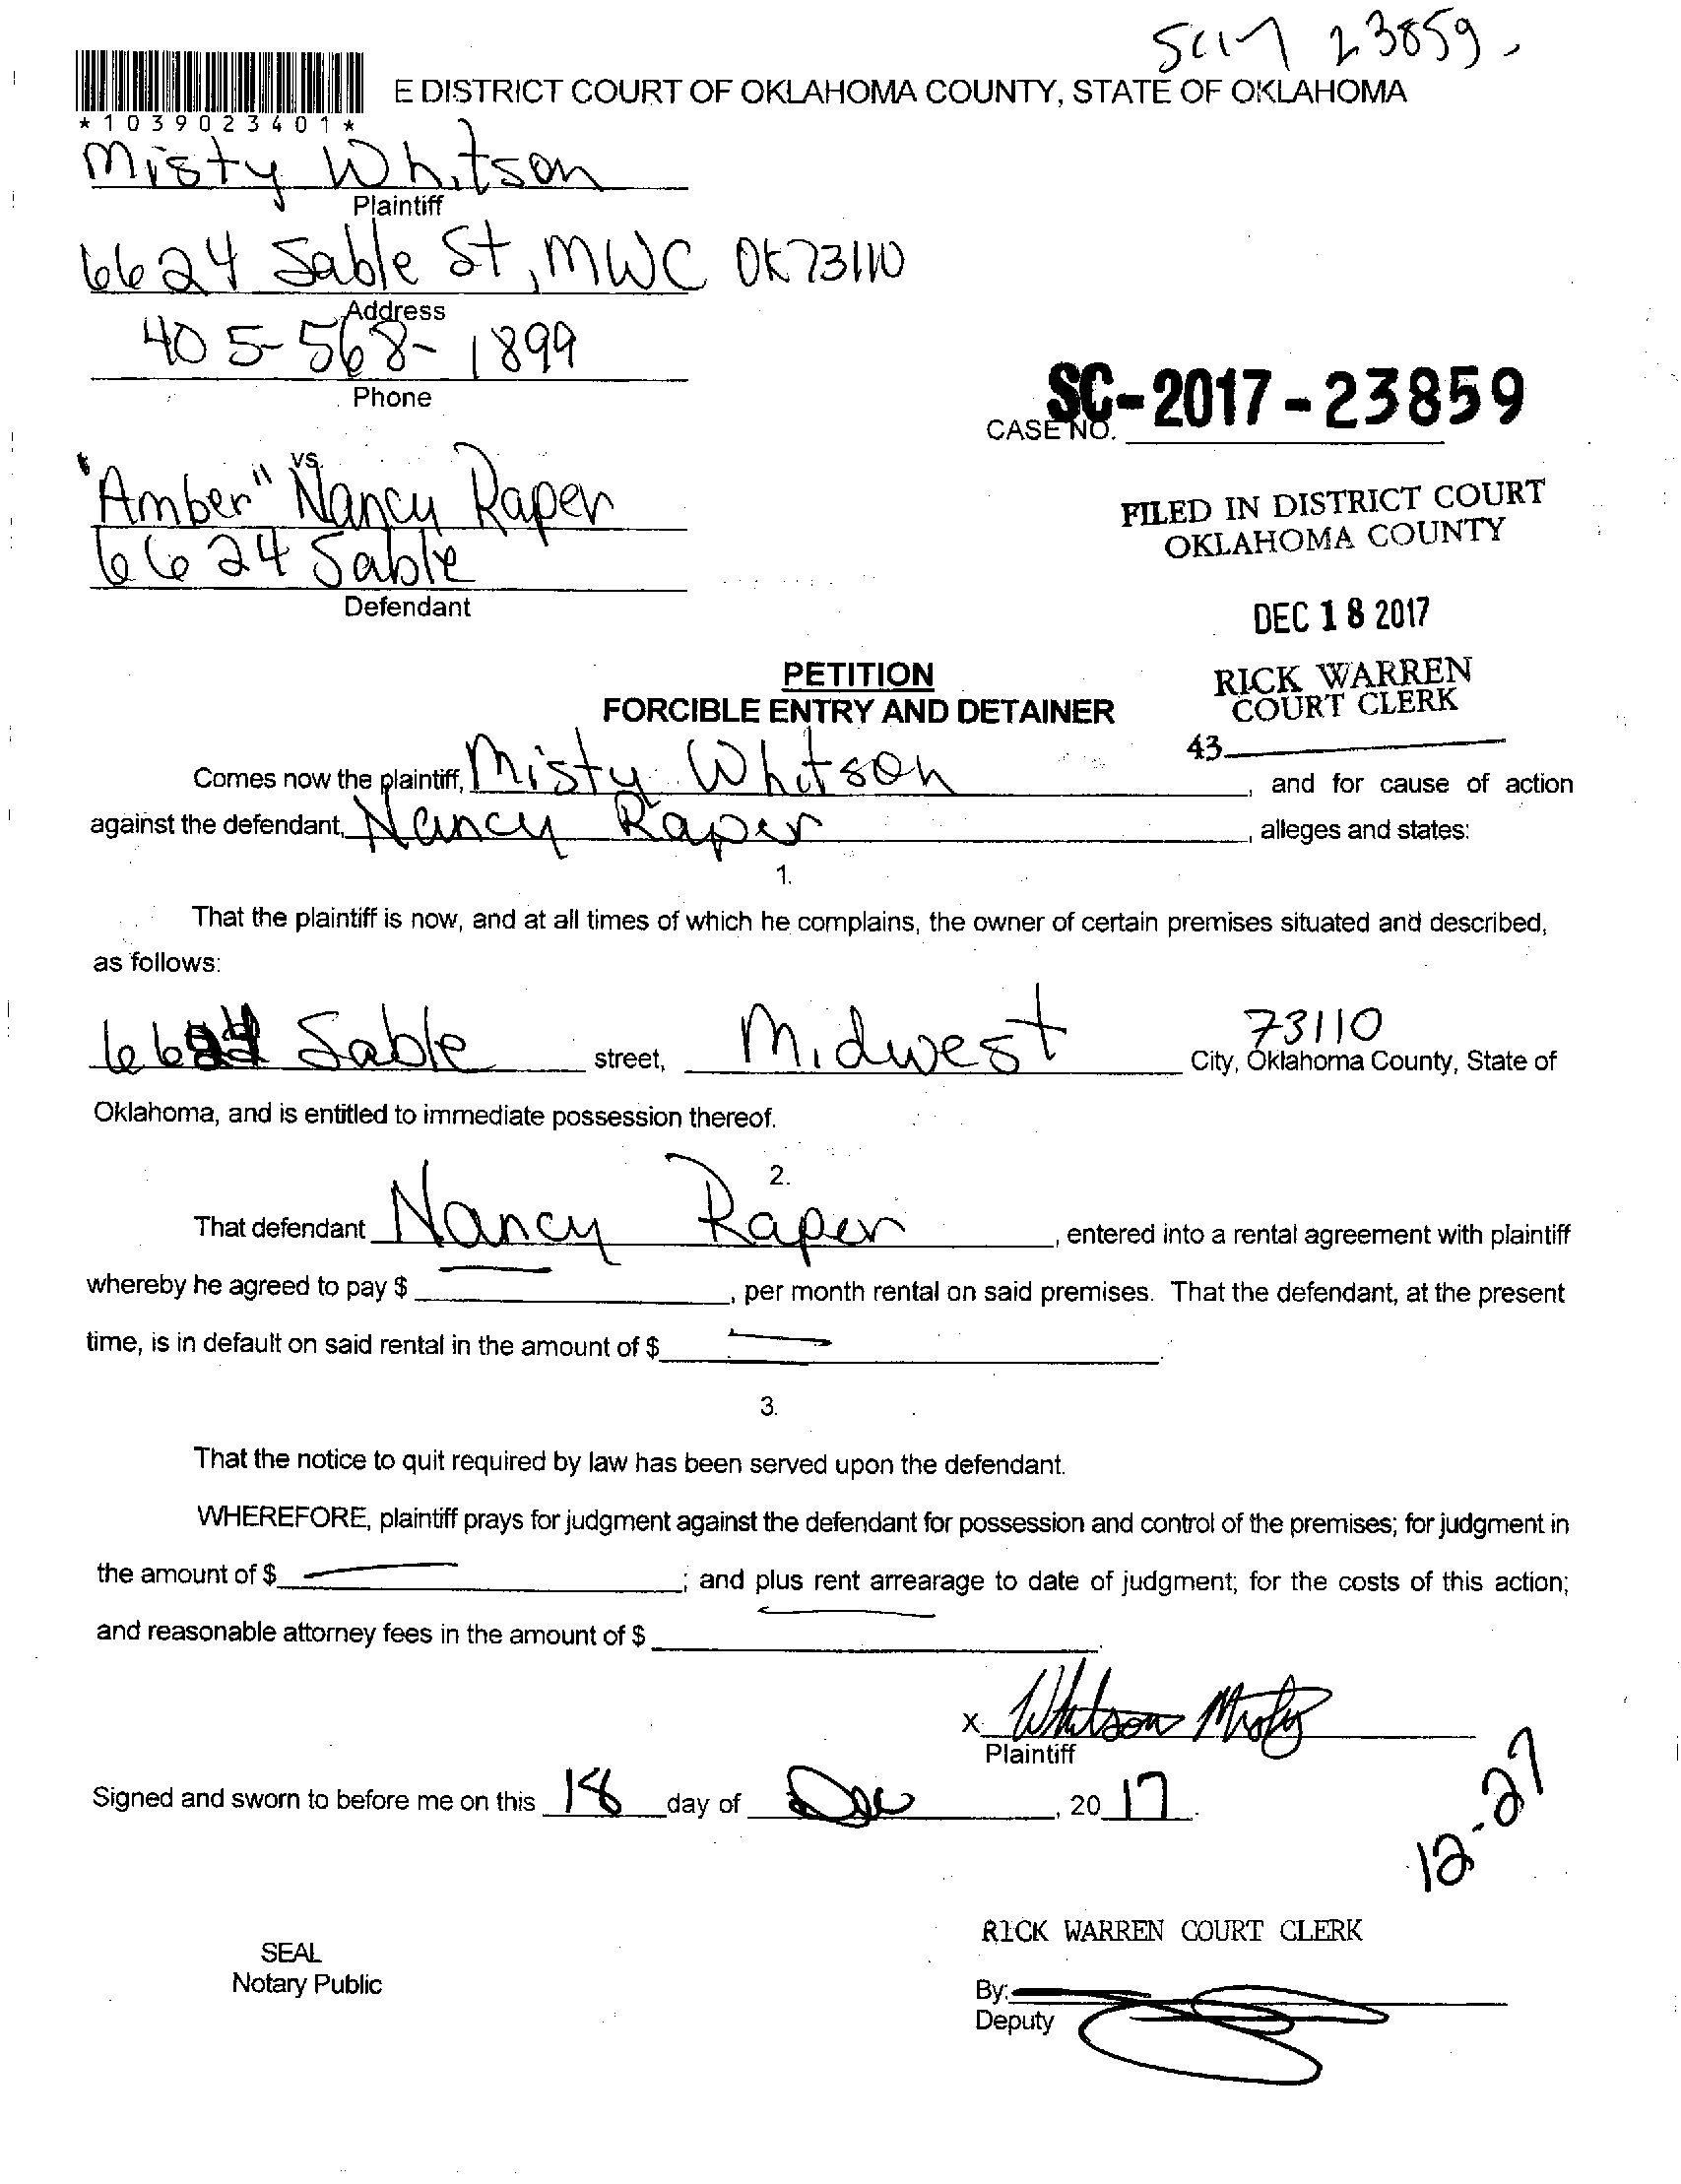 SC17 23859.
E DISTRICT COURT OF OKLAHOMA COUNTY, STATE OF OKLAHOMA
*1039023401*
Misty Whitson
Plaintiff
6624 Sable St, MWC OK 73110
Address
405-568-1899
Phone
SC-2017-23859
CASE NO.
vs.
"Amber" Nancy Raper
6624 Sable
Defendant
FILED IN DISTRICT COURT
OKLAHOMA COUNTY
DEC 18 2017
RICK WARREN
COURT CLERK
43
PETITION
FORCIBLE ENTRY AND DETAINER
Comes now the plaintiff, Misty Whitson, and for cause of action
against the defendant, Nancy Raper, alleges and states:
1.
That the plaintiff is now, and at all times of which he complains, the owner of certain premises situated and described,
as follows:
6624 Sable street, Midwest City, Oklahoma County, State of
73110
Oklahoma, and is entitled to immediate possession thereof.
2.
That defendant Nancy Raper, entered into a rental agreement with plaintiff
whereby he agreed to pay $ , per month rental on said premises. That the defendant, at the present
time, is in default on said rental in the amount of $ .
3.
That the notice to quit required by law has been served upon the defendant.
WHEREFORE, plaintiff prays for judgment against the defendant for possession and control of the premises; for judgment in
the amount of $ ; and plus rent arrearage to date of judgment; for the costs of this action;
and reasonable attorney fees in the amount of $ .
x Whitson Misty
Plaintiff
Signed and sworn to before me on this 18 day of Dec, 2017.
12-27
RICK WARREN COURT CLERK
SEAL
Notary Public
By:
Deputy